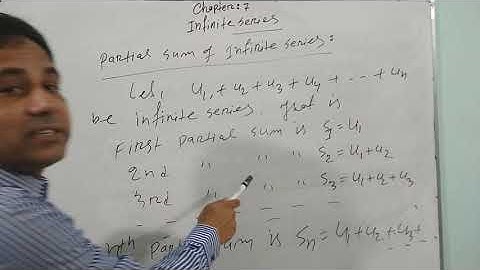 Chapter: 7
Infinite series
Partial sum of Infinite series:
Let, u₁ + u₂ + u₃ + u₄ + - - - + uₙ
be infinite series. that is
First partial sum is S₁ = u₁
2nd " " " S₂ = u₁ + u₂
3rd " " " S₃ = u₁ + u₂ + u₃
- - - - - -
nth partial sum is Sₙ = u₁ + u₂ + u₃ + - - -